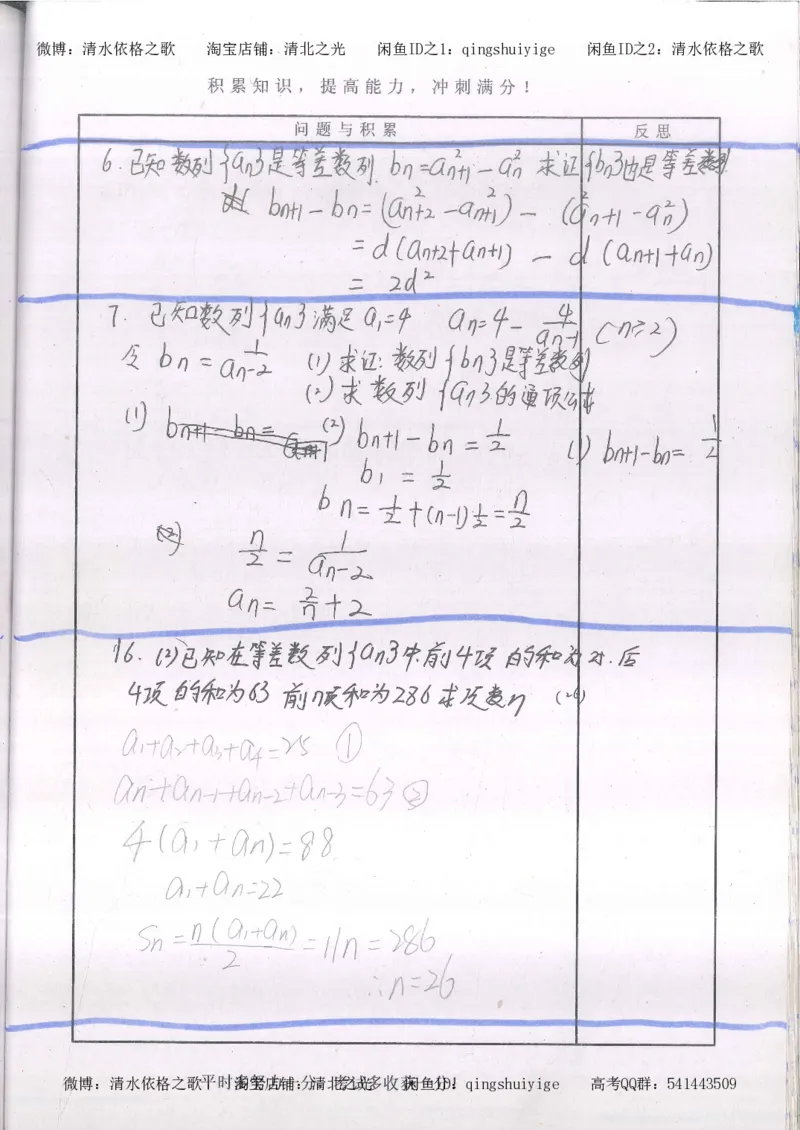 微博：清水依格之歌 淘宝店铺：清北之光 闲鱼ID之1：qingshuiyige 闲鱼ID之2：清水依格之歌
积累知识，提高能力，冲刺满分！
问题与积累 反思
6.已知数列{an}是等差数列,bn=an+1²-an² 求证{bn}也是等差数列
bn+1-bn=(an+2²-an+1²)-(an+1²-an²)
=d(an+2+an+1)-d(an+1+an)
=2d²
7. 已知数列{an}满足a1=4 an=4-4/an-1 (n≥2)
令bn=1/an-2 (1)求证:数列{bn}是等差数列
(2)求数列{an}的通项公式
(1) (2) bn+1-bn=1/2 (1) bn+1-bn=1/2
b1=1/2
bn=1/2+(n-1)1/2=n/2
n/2=1/an-2
an=2/n+2
16.(2)已知在等差数列{an}中,前4项的和为25.后
4项的和为63 前n项和为286求项数n (26)
a1+a2+a3+a4=25 ①
an+an-1+an-2+an-3=63 ②
4(a1+an)=88
a1+an=22
Sn=n(a1+an)/2=11n=286
∴n=26
微博：清水依格之歌 淘宝店铺：清北之光 闲鱼ID：qingshuiyige 高考QQ群：541443509